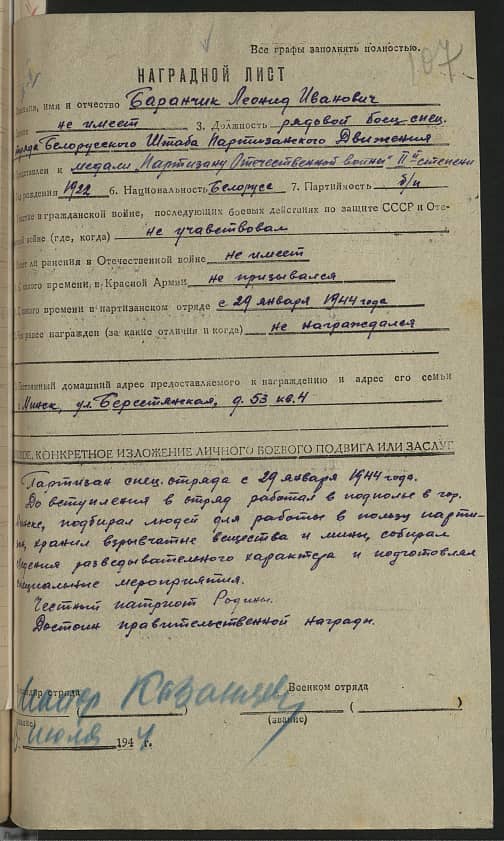 Все графы заполнять полностью.
107
НАГРАДНОЙ ЛИСТ
имя и отчество Баранчик Леонид Иванович
не имеет 3. Должность рядовой боец спец.
Белорусского Штаба Партизанского Движения
к медали "Партизану Отечественной войны" II й степени
рождения 1922 6. Национальность Белорусс 7. Партийность б/п
в гражданской войне, последующих боевых действиях по защите СССР и Оте-
войне (где, когда) не учавствовал
ли ранения в Отечественной войне не имеет
времени в Красной Армии не призывался
времени в партизанском отряде с 29 января 1944 года
ранее награжден (за какие отличия и когда) не награждался
домашний адрес предоставляемого к награждению и адрес его семьи
Минск, ул. Берестянская, д. 53 кв. 4
КОНКРЕТНОЕ ИЗЛОЖЕНИЕ ЛИЧНОГО БОЕВОГО ПОДВИГА ИЛИ ЗАСЛУГ
Партизан спец. отряда с 29 января 1944 года.
До вступления в отряд работал в подполье в гор.
Минске, подбирал людей для работы в пользу парти-
хранил взрывчатые вещества и мины, собирал
сведения разведывательного характера и подготовлял
специальные мероприятия.
Честный патриот Родины.
Достоин правительственной награды.
отряда Военком отряда
Майор
(звание)
июля 1944 г.